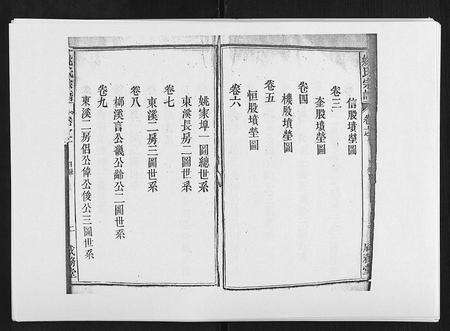 信股墳塋圖
卷三
奎股墳塋圖
卷四
樓股墳塋圖
卷五
恒股墳塋圖
卷六
姚家埠一圖總世系
東溪長房二圖世系
卷七
東溪二房三圖世系
卷八
柳溪言公義公齡公二圖世系
卷九
東溪二房倡公偉公俊公三圖世系